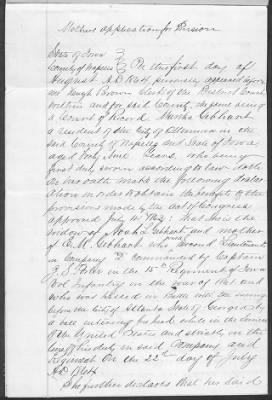 Mothers application for Pension
State of Iowa
County of Wapello On the first day of
August A.D. 1864 personally appeared before
me Hugh Brown Clerk of the District Court
within and for said County, the same being
a Court of Record Martha Gebhart
a resident of the City of Ottumwa in the
said County of Wapello and State of Iowa
aged Forty Years, who being
first duly sworn according to law doth
on her oath make the following declar
ation in order to obtain the benefits of the
provisions made by the Act of Congress
approved July 14 1862: that she is the
widow of Noah Gebhart and mother
of E. M. Gebhart who was Second Lieutenant
in Company "D" commanded by Captain
in the 15th Regiment of Iowa
Vol Infantry in the war of 1861 and
who was killed in Battle with the enemy
before the City of Atlanta State of Georgia by
a ball entering his head while in the service
of the United States and strictly in the
line of his duty in said Company and
Regiment On the 22nd day of July
A.D. 1864
She further declares that her said